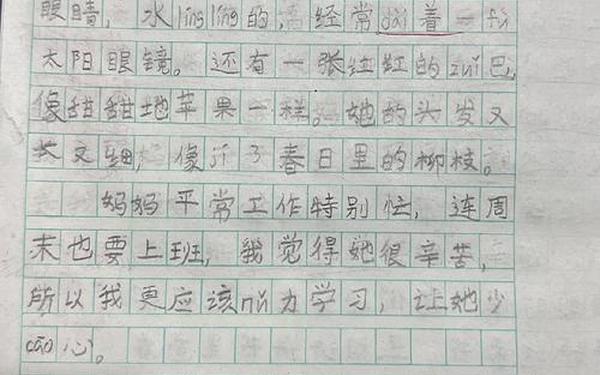 眼睛，水líng líng的，经常dài着一fù
太阳眼镜。还有一张红红的zuǐ巴，
像甜甜地苹果一样。她的头发又
长又细，像 了春日里的柳枝。
妈妈平常工作特别忙，连周
末也要上班，我觉得她很辛苦，
所以我更应该nǔ力学习，让她少
cāo心。